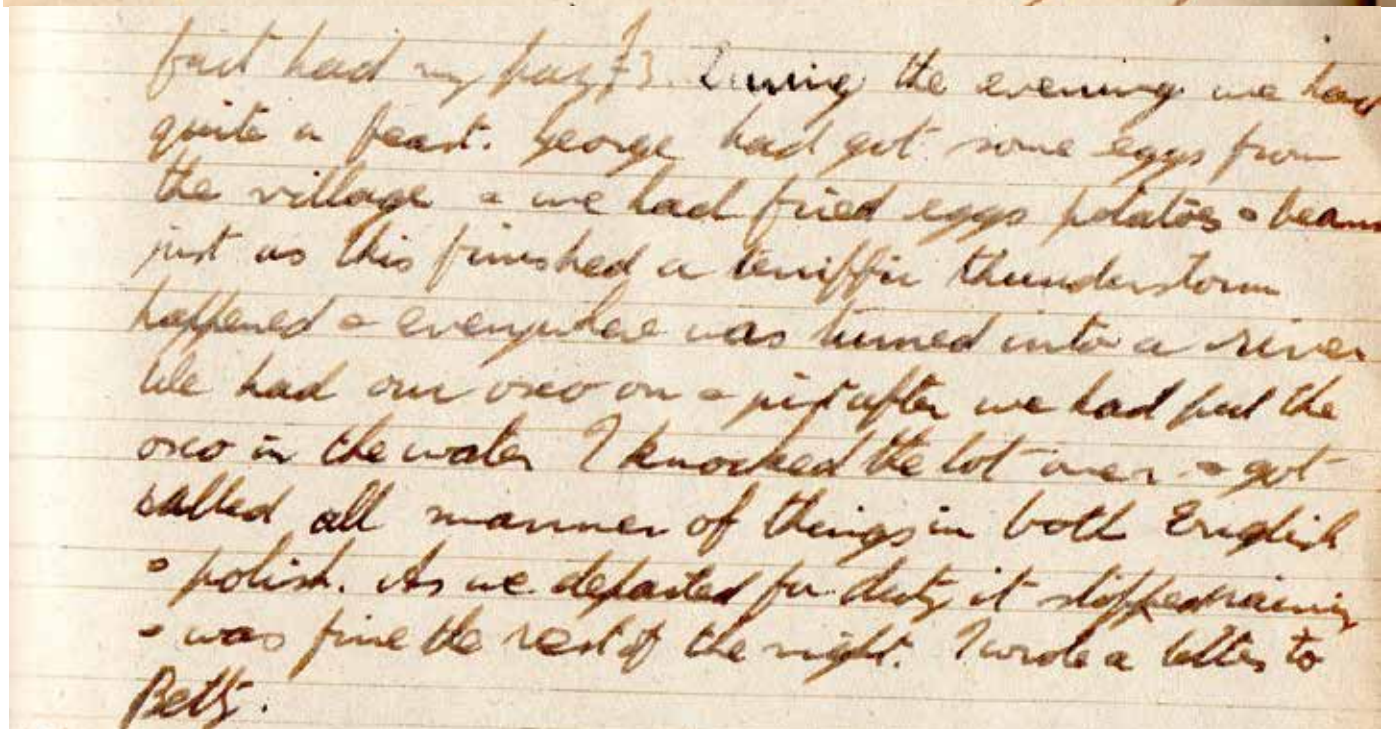 fast had my pay £3. During the evening we had
quite a feast. George had got some eggs from
the village & we had fried eggs potatoes & beans
just as this finished a teniffic thunderstorm
happened & everywhere was turned into a river
We had our oxo on & just after we had put the
oxo in the water I knocked the lot over & got
called all manner of things in both English
& polish. As we departed for duty it stopped raining
& was fine the rest of the night. I wrote a letter to
Betty.